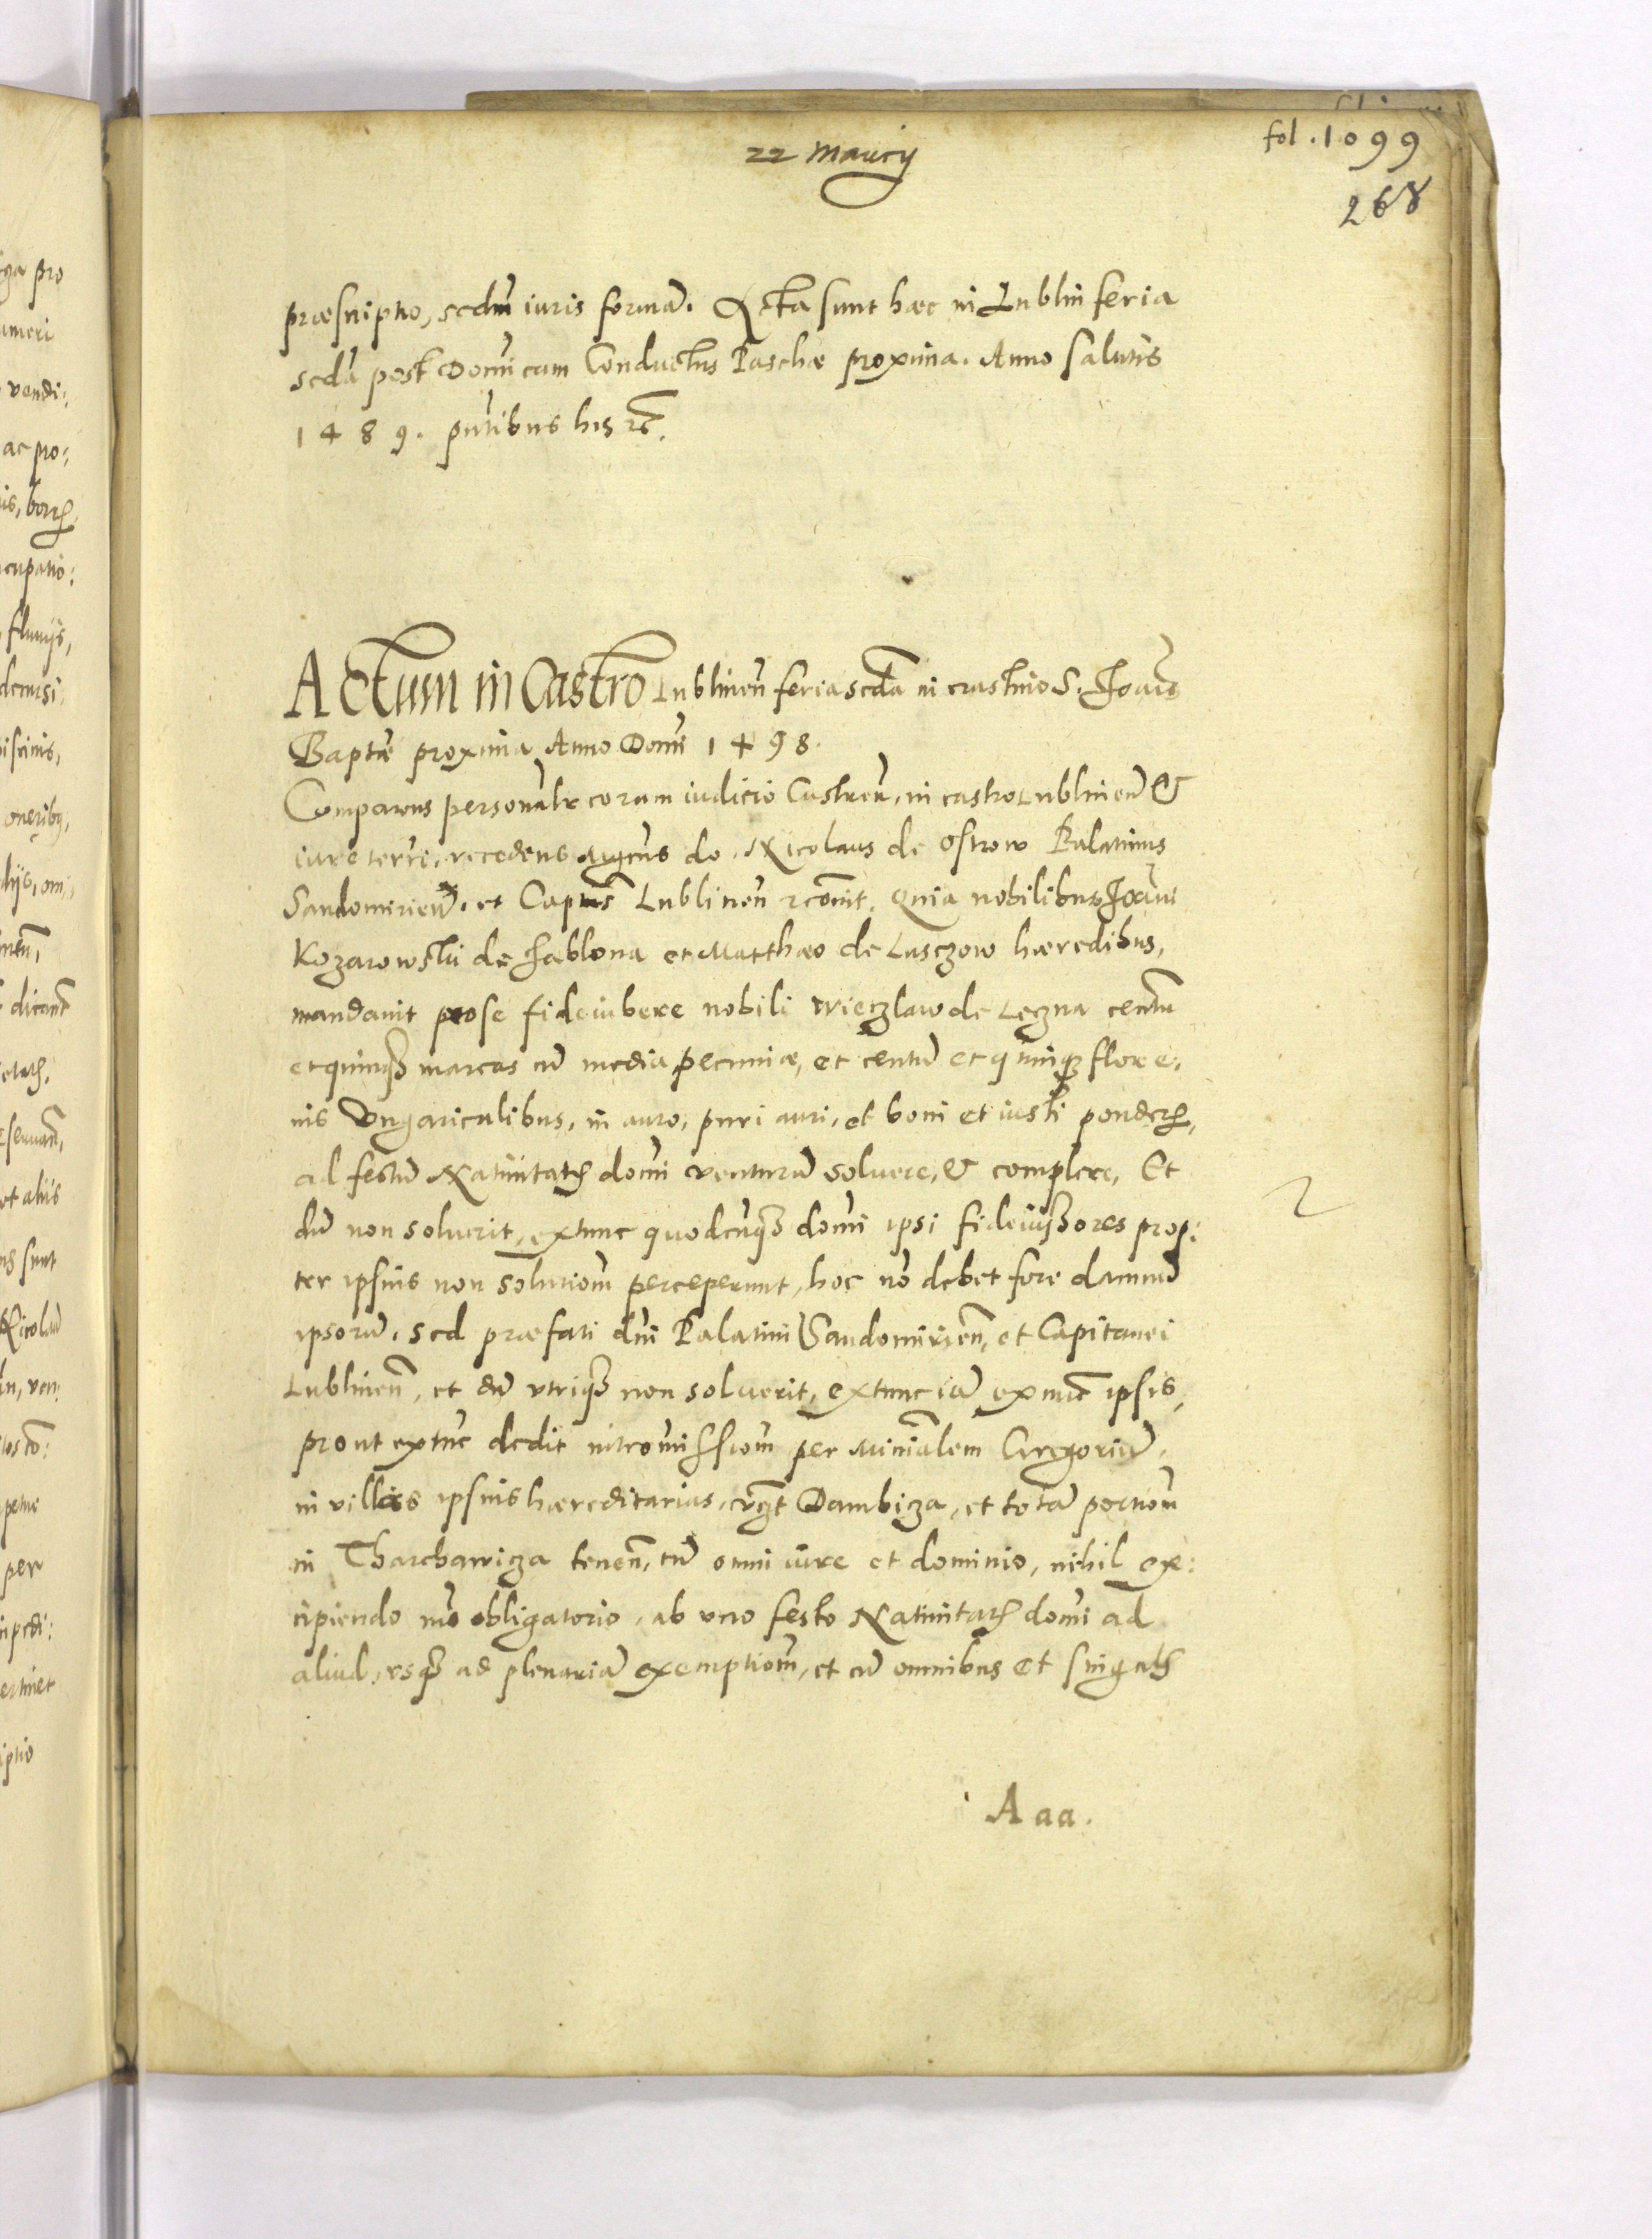 22 Marcij
fol. 1099
268
præscriptio, scdm̄ iuris formā. Acta sunt hæc in Lublin feria
scda post Domīcam Conductus Paschæ proxima. Anno salutis
1489. pn̄tibus his &c.
Actum in Castro Lublinen̄ feria scda in crastino S. Joan̄is
Baptæ proxima Anno Domi 1498.
Comparens personalr̄ coram iudicio Castren̄, in castro Lublinen̄ &
iure terri, recedens mgcus do. Nicolaus de Ostrow Palatinus
Sandomirien̄. et Capneus Lublinen̄ rcōuit. Quia nobilibus Joan̄i
Kozarowski de Jablona et Matthæo de Lusczow hæredibus,
mandauit pro se fideiubere nobili Wieczlaw de Leczna centū
et quinqʒ marcas cū media pecuniæ, et centū et quinqʒ flore:
nis Vngaricalibus, in auro, puri auri, et boni et iusti ponderis,
ad festū Natiuitatis domi venturū soluere, & complere, Et
dū non soluerit, extunc quodcuqʒ domi ipsi fideiussores prop:
ter ipsius non solutiom perceperunt, hoc nō debet fore damnū
ipsorū. sed præfati dni Palatini Sandomirien̄, et Capitanei
Lublinen̄, et dū vtriqʒ non soluerit, extunc iā exnuc ipsis,
prout extūc dedit intromissiom per ministerialem Gregoriū,
in villas ipsius hæreditarias, vigt Dambicza, et totā portiom
in Tharchawicza tenen̄, cū omni iure et dominio, nihil ex:
cipiendo mō obligatorio, ab vno festo Natiuitatis domi ad
aliud, vsqʒ ad plenariā exemptiom, et cū omnibus et singulis
Aaa.